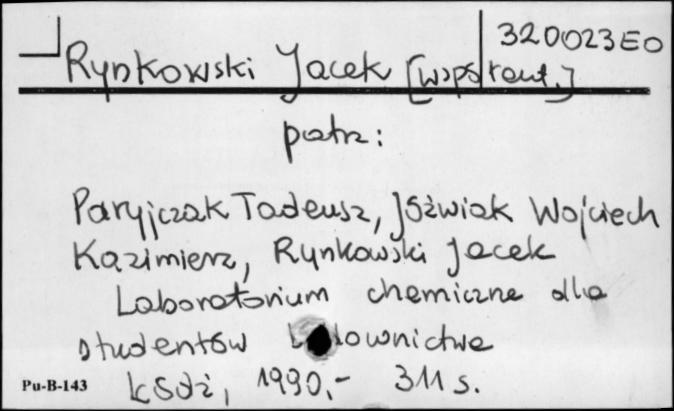 320023E0
Rynkowski Jacek [współaut.]
patrz:
Paryjczak Tadeusz, Jóźwiak Wojciech
Kazimierz, Rynkowski Jacek
Laboratorium chemiczne dla
studentów budownictwa
Łódź, 1990,- 311 s.
Pu-B-143